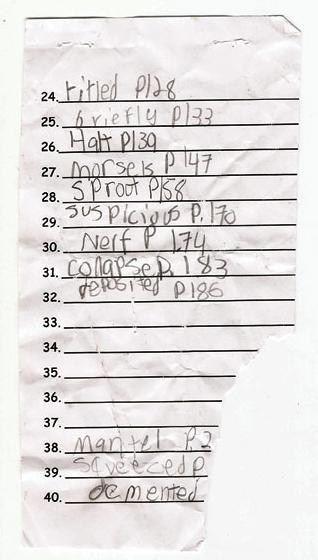 24. rifled P128
25. briefly P133
26. Halt P139
27. morsels P 147
28. Sprout P158
29. suspicious P. 170
30. Nerf P 174
31. collapse P. 183
32. deposited P 186
33.
34.
35.
36.
37.
38. mantel P. 2
39. Squeeced P
40. demented